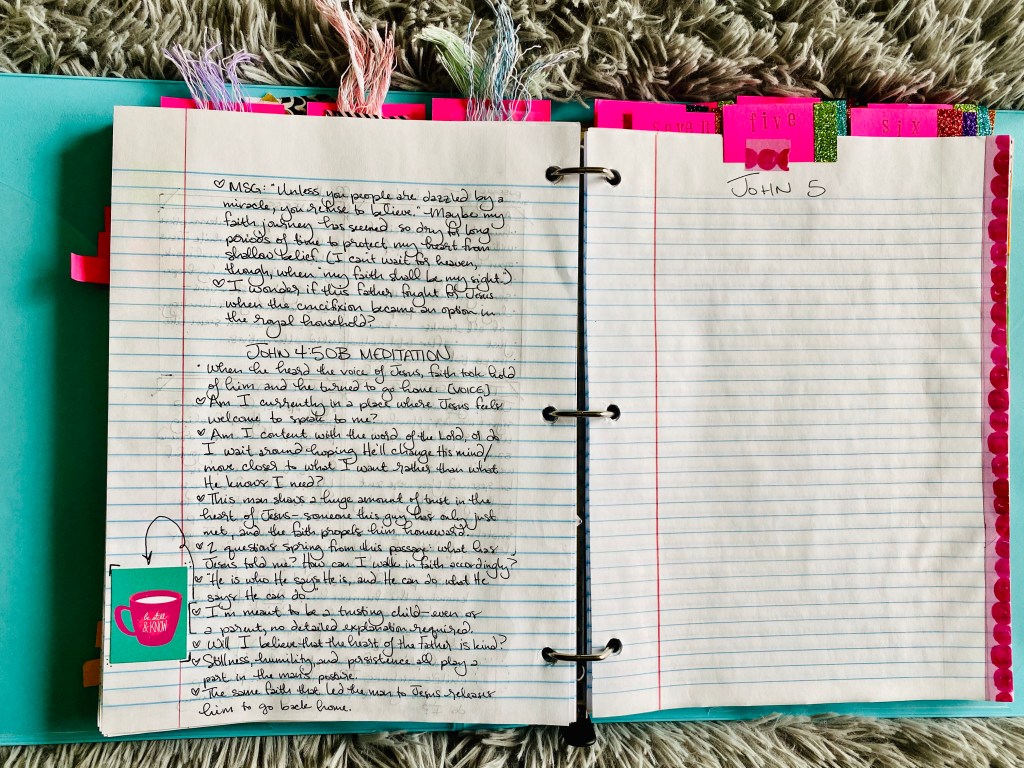 ♡ MSG: "Unless you people are dazzled by a
miracle, you refuse to believe." Maybe my
faith journey has seemed so dry for long
periods of time to protect my heart from
shallow belief. (I can't wait for heaven,
though, when "my faith shall be my sight.")
♡ I wonder if this father fought for Jesus
when the crucifixion became an option in
the royal household?
JOHN 4:50B MEDITATION
"When he heard the voice of Jesus, faith took hold
of him and he turned to go home. (VOICE)
♡ Am I currently in a place where Jesus feels
welcome to speak to me?
♡ Am I content with the word of the Lord, or do
I wait around hoping He'll change His mind/
move closer to what I want rather than what
He knows I need?
♡ This man shows a huge amount of trust in the
heart of Jesus- someone this guy has only just
met, and the faith propels him homeward.
♡ 2 questions spring from this passage: what has
Jesus told me? How can I walk in faith accordingly?
♡ "He is who He says He is, and He can do what He
says He can do."
♡ I'm meant to be a trusting child- even as
a parent, no detailed explanation required.
♡ Will I believe that the heart of the Father is kind?
♡ Stillness, humility, and persistence all play a
part in the man's posture.
♡ The same faith that led the man to Jesus releases
him to go back home.
be still
& KNOW
seven
five
six
JOHN 5